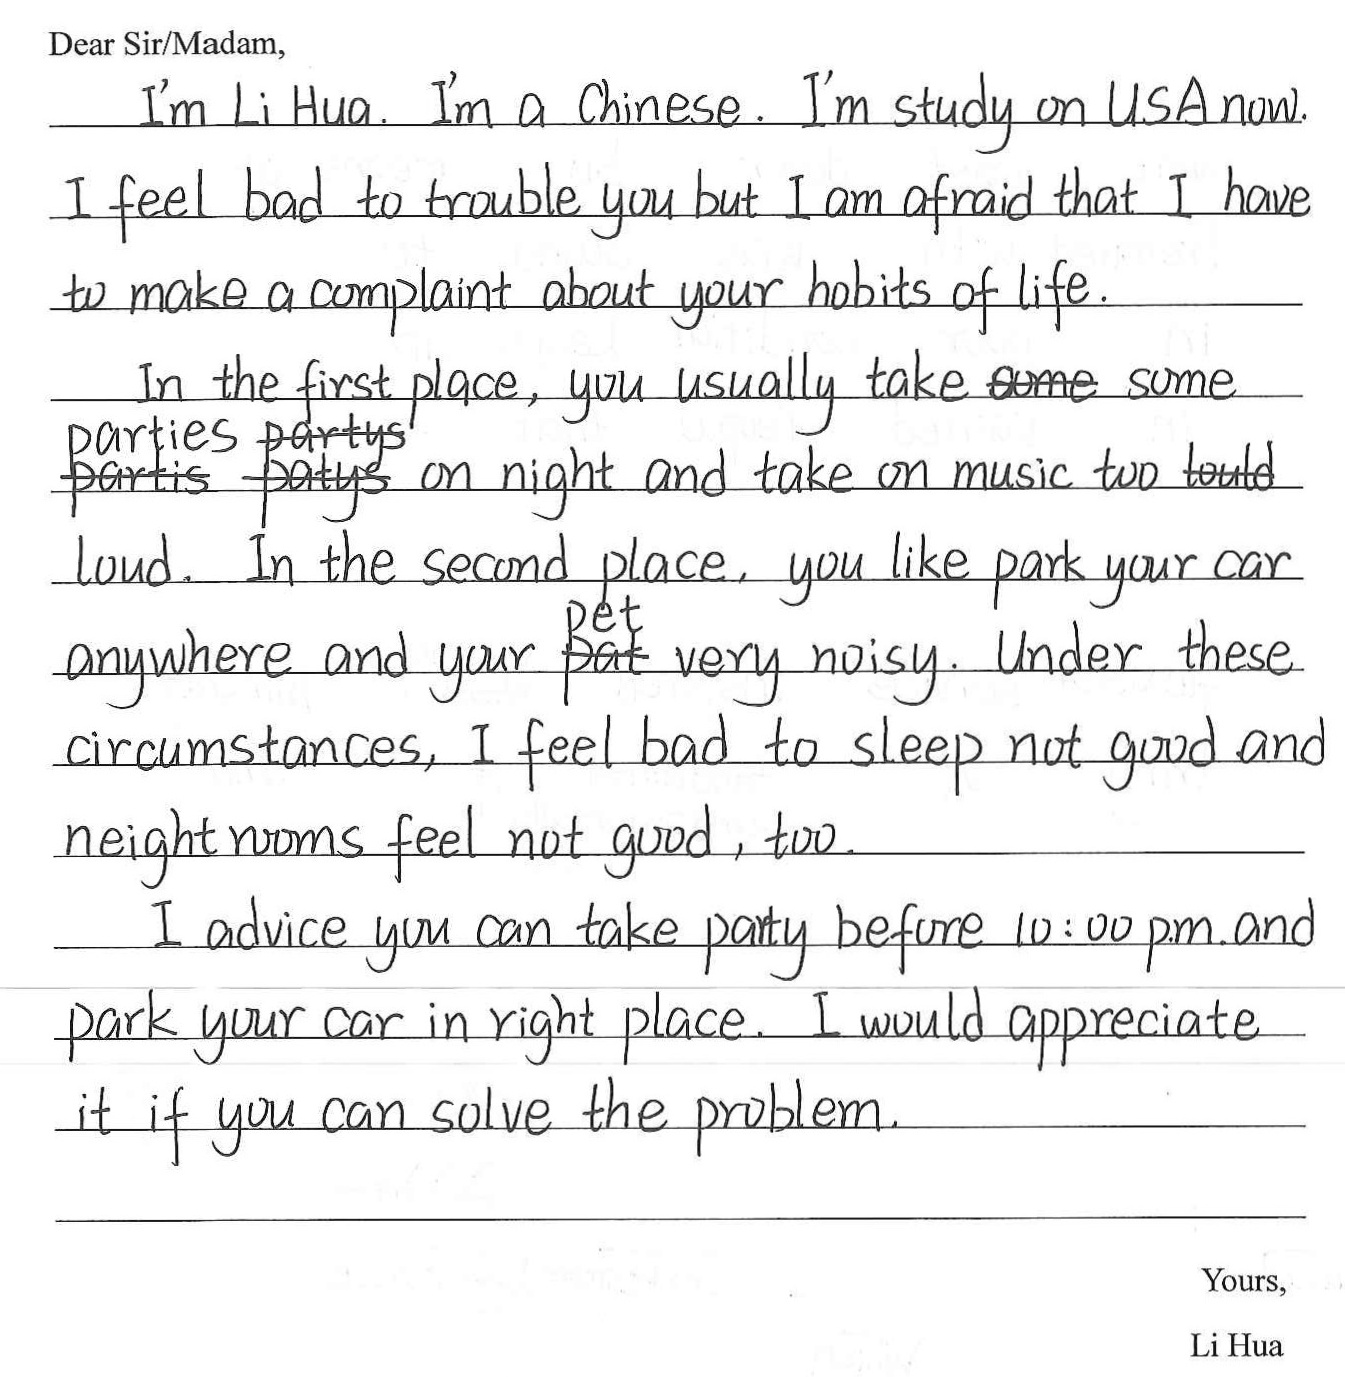 Dear Sir/Madam,
I'm Li Hua. I'm a Chinese. I'm study on USA now.
I feel bad to trouble you but I am afraid that I have
to make a complaint about your hobits of life.
In the first place, you usually take some some
parties partys
partis patys on night and take on music too tould
loud. In the second place, you like park your car
pet
anywhere and your pat very noisy. Under these
circumstances, I feel bad to sleep not good and
neightrooms feel not good, too.
I advice you can take party before 10:00 p.m. and
park your car in right place. I would appreciate
it if you can solve the problem.
Yours,
Li Hua